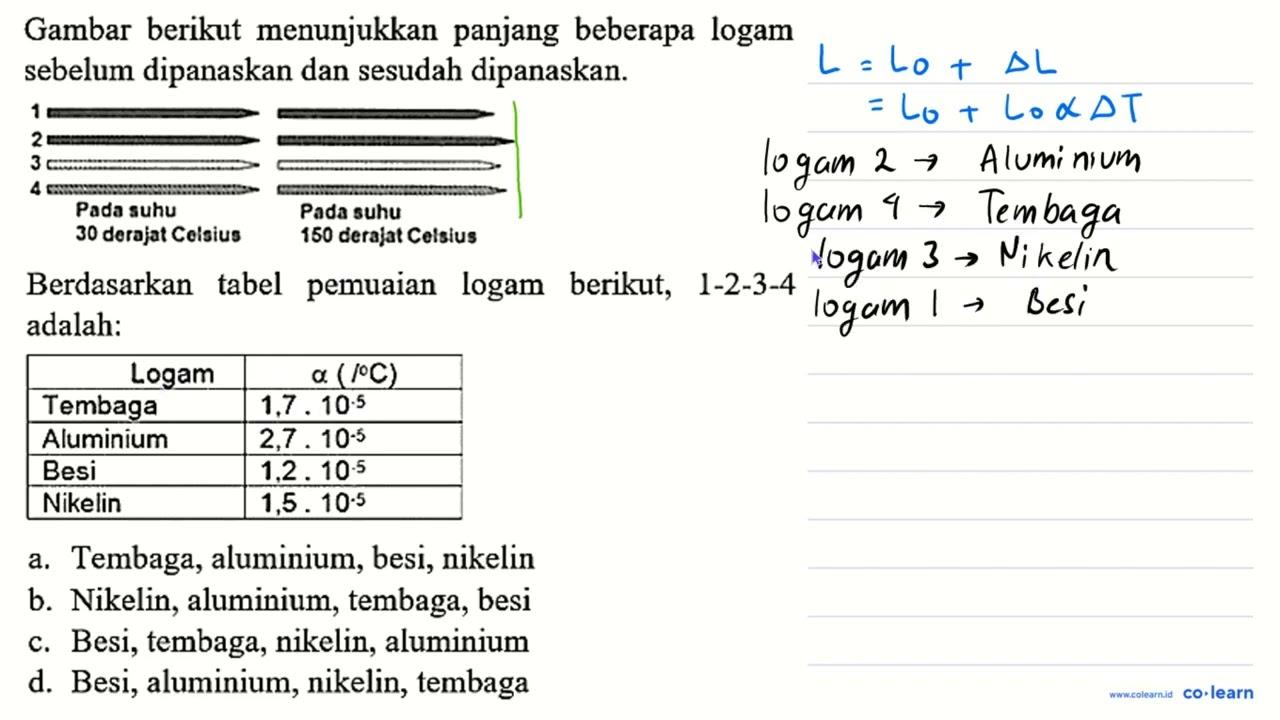 Gambar berikut menunjukkan panjang beberapa logam
sebelum dipanaskan dan sesudah dipanaskan.
1
2
3
4
Pada suhu
30 derajat Celsius
Pada suhu
150 derajat Celsius
Berdasarkan tabel pemuaian logam berikut, 1-2-3-4
adalah:
Logam α (/⁰C)
Tembaga 1,7 . 10⁻⁵
Aluminium 2,7 . 10⁻⁵
Besi 1,2 . 10⁻⁵
Nikelin 1,5 . 10⁻⁵
a. Tembaga, aluminium, besi, nikelin
b. Nikelin, aluminium, tembaga, besi
c. Besi, tembaga, nikelin, aluminium
d. Besi, aluminium, nikelin, tembaga
L = Lo + ΔL
= Lo + Lo α ΔT
logam 2 → Aluminium
logam 4 → Tembaga
logam 3 → Nikelin
logam 1 → Besi
www.colearn.id co·learn